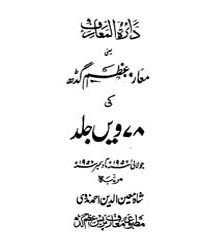 دائرۃ المعارف
یعنی
معارف اعظم گڈھ
کی
۷۸ ویں جلد
جولائی ۱۹۵۶ء تا دسمبر ۱۹۵۶ء
مرتبہ
شاہ معین الدین احمد ندوی
مطبع معارف اعظم گڈھ